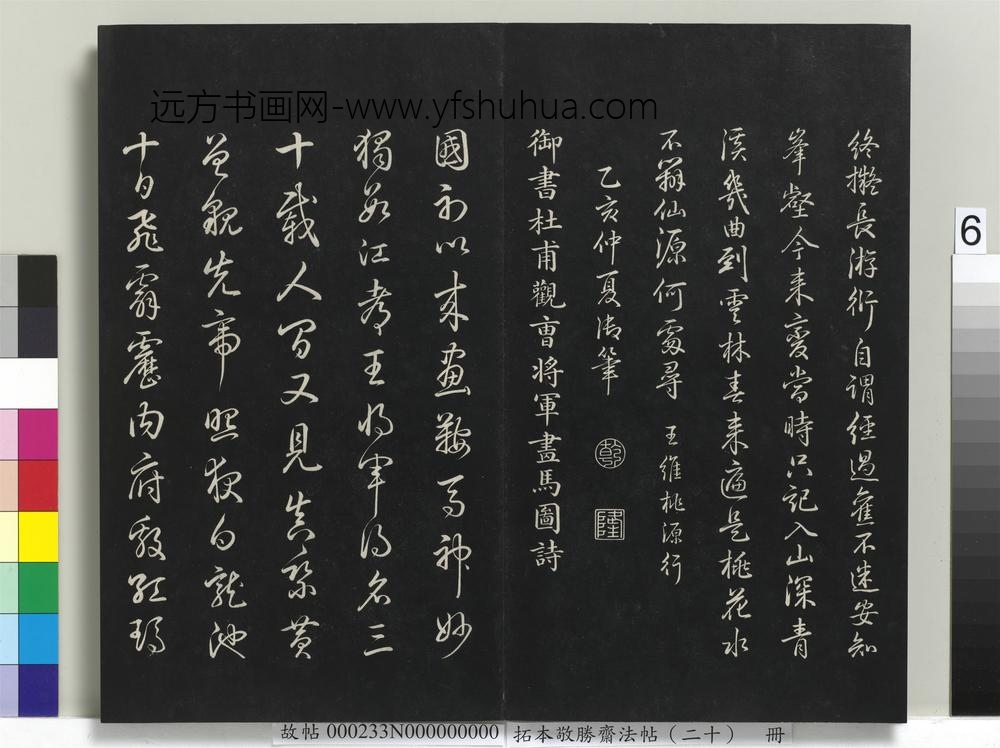 远方书画网-www.yfshuhua.com
終擬長游衍自謂經過舊不迷安知
峯壑今来變當時只記入山深青
溪幾曲到雲林春来遍是桃花水
不辨仙源何處尋 王維桃源行
乙亥仲夏御筆 乾 隆
御書杜甫觀曹將軍畫馬圖詩
國初以来畫鞍馬神妙
獨數江都王将軍得名三
十載人間又見真乘黃
曾貌先帝照夜白龍池
十日飛霹靂内府殷紅瑪
故帖 000233N000000000 拓本敬勝齋法帖（二十） 冊
6